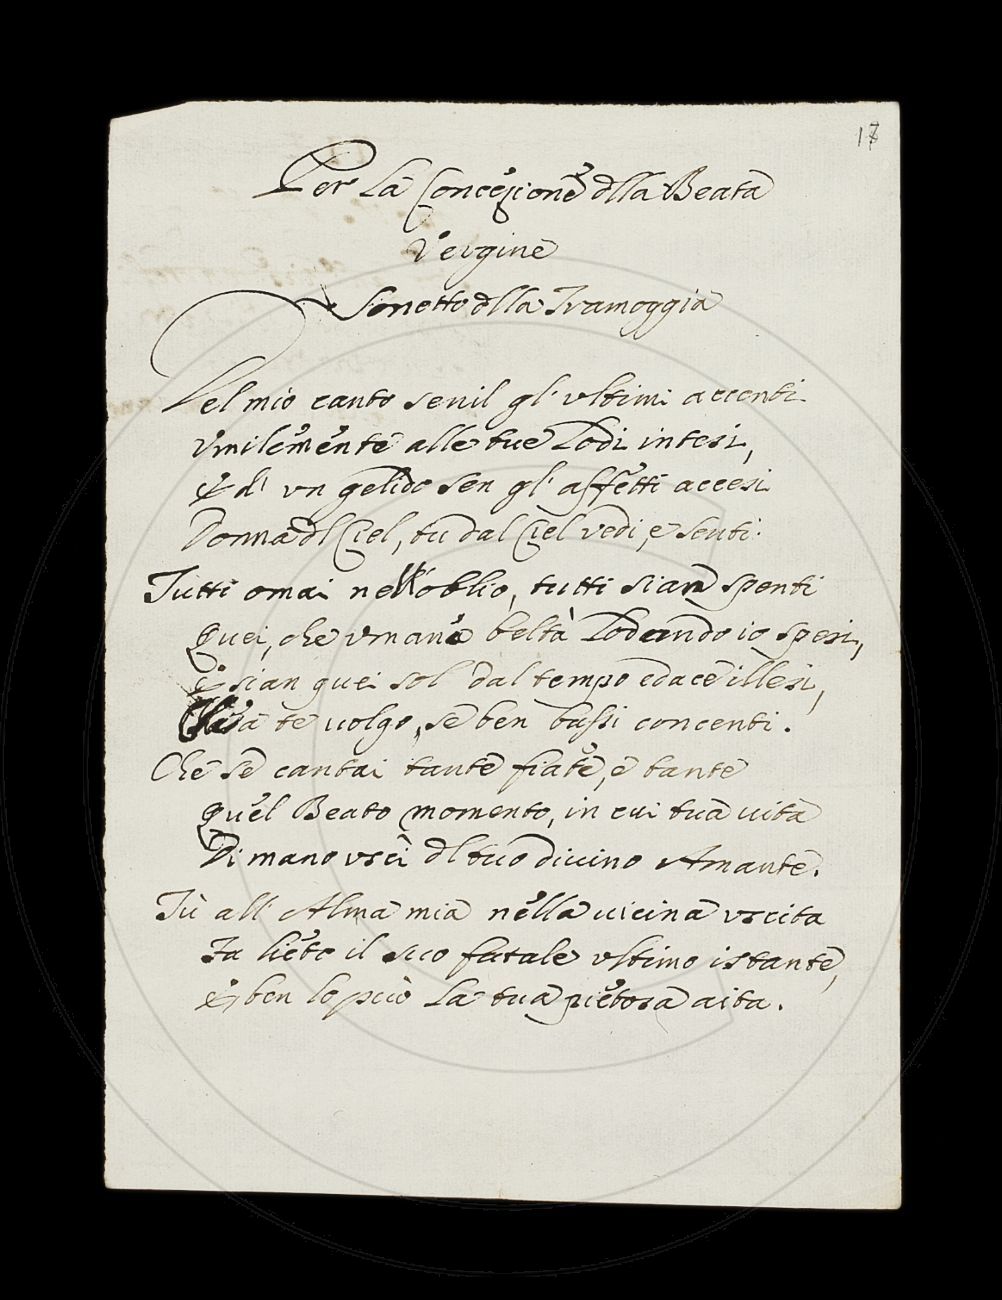 17
Per la Concezione dlla Beata
Vergine
Sonetto dlla Tramoggia
Del mio canto senil gl' ultimi accenti
Vmilemente alle tue Lodi intesi,
E d' un gelido sen gl' affetti accesi
Donna dl Ciel, tu dal Ciel vedi, e senti:
Tutti omai nell'oblio, tutti sian spenti
Quei, che vmana beltà Lodando io spesi,
E sian quei sol dal tempo edace illesi,
a te volgo, se ben bassi concenti.
Che se cantai tante fiate, e tante
quel Beato momento, in cui tua vita
Di mano uscì dl tuo divino Amante.
Tù all' Alma mia nella vicina vscita
Fa lieto il suo fatale vltimo istante,
E ben lo può la tua pietosa aita.